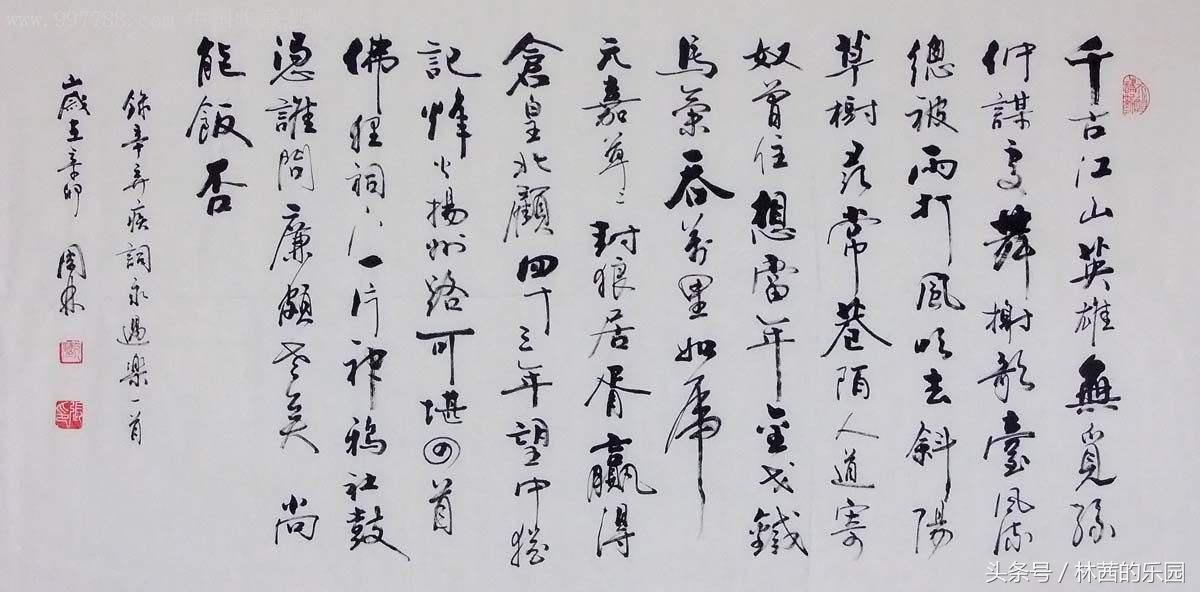 千古江山英雄無覓孫
仲謀處舞榭歌臺風流
總被雨打風吹去斜陽
草樹尋常巷陌人道寄
奴曾住想當年金戈鐵
馬氣吞萬里如虎
元嘉草〻封狼居胥贏得
倉皇北顧四十三年望中猶
記烽火揚州路可堪回首
佛狸祠下一片神鴉社鼓
憑誰問廉頗老矣 尚
能飯否
錄辛弃疾詞永遇樂一首
歲在辛卯 周林
www.997788.com
头条号 / 林茜的乐园